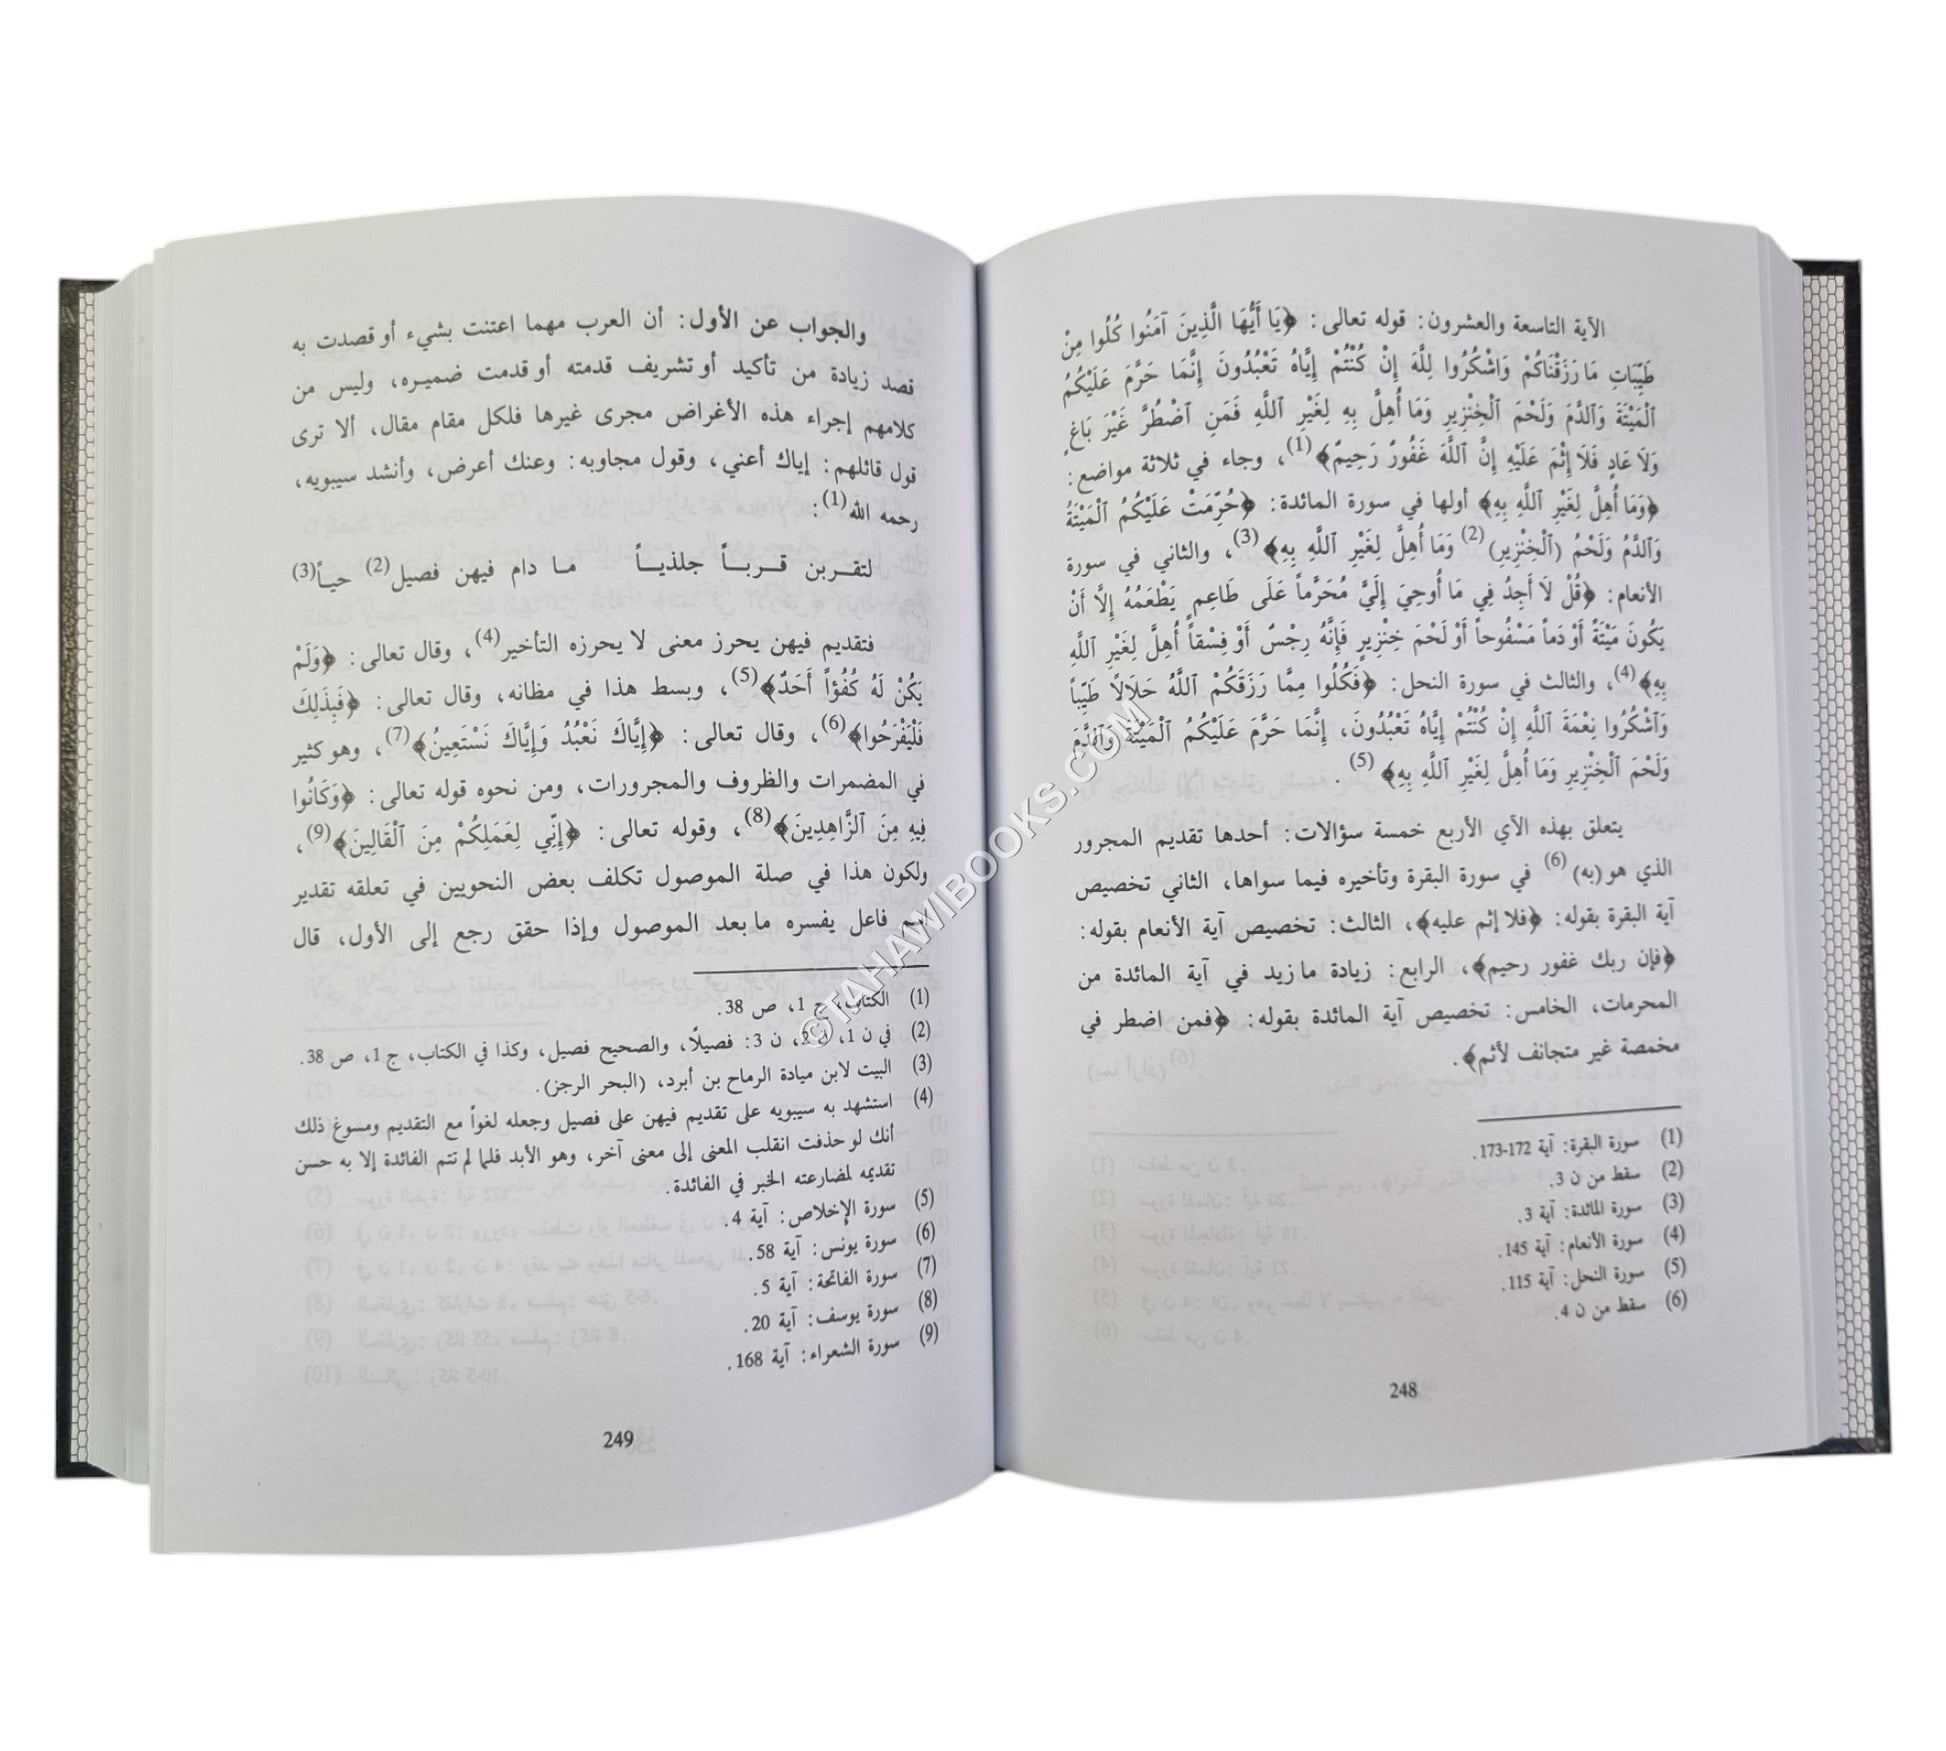 الآية التاسعة والعشرون: قوله تعالى: ﴿يَا أَيُّهَا الَّذِينَ آمَنُوا كُلُوا مِنْ
طَيِّبَاتِ مَا رَزَقْنَاكُمْ وَاشْكُرُوا لِلَّهِ إِنْ كُنْتُمْ إِيَّاهُ تَعْبُدُونَ إِنَّمَا حَرَّمَ عَلَيْكُمُ
ٱلْمَيْتَةَ وَٱلدَّمَ وَلَحْمَ ٱلْخِنْزِيرِ وَمَا أُهِلَّ بِهِ لِغَيْرِ اللَّهِ فَمَنِ ٱضْطُرَّ غَيْرَ بَاغٍ
وَلَا عَادٍ فَلَا إِثْمَ عَلَيْهِ إِنَّ اللَّهَ غَفُورٌ رَحِيمٌ﴾(1)، وجاء في ثلاثة مواضع:
﴿وَمَا أُهِلَّ لِغَيْرِ اللَّهِ بِهِ﴾ أولها في سورة المائدة: ﴿حُرِّمَتْ عَلَيْكُمُ ٱلْمَيْتَةُ
وَٱلدَّمُ وَلَحْمُ (ٱلْخِنْزِيرِ)(2) وَمَا أُهِلَّ لِغَيْرِ اللَّهِ بِهِ﴾(3)، والثاني في سورة
الأنعام: ﴿قُلْ لَا أَجِدُ فِي مَا أُوحِيَ إِلَيَّ مُحَرَّماً عَلَى طَاعِمٍ يَطْعَمُهُ إِلَّا أَنْ
يَكُونَ مَيْتَةً أَوْ دَماً مَسْفُوحاً أَوْ لَحْمَ خِنْزِيرٍ فَإِنَّهُ رِجْسٌ أَوْ فِسْقاً أُهِلَّ لِغَيْرِ اللَّهِ
بِهِ﴾(4)، والثالث في سورة النحل: ﴿فَكُلُوا مِمَّا رَزَقَكُمُ اللَّهُ حَلَالًا طَيِّباً
وَٱشْكُرُوا نِعْمَةَ اللَّهِ إِنْ كُنْتُمْ إِيَّاهُ تَعْبُدُونَ، إِنَّمَا حَرَّمَ عَلَيْكُمُ ٱلْمَيْتَةَ وَٱلدَّمَ
وَلَحْمَ ٱلْخِنْزِيرِ وَمَا أُهِلَّ لِغَيْرِ اللَّهِ بِهِ﴾(5).
يتعلق بهذه الآي الأربع خمسة سؤالات: أحدها تقديم المجرور
الذي هو (به)(6) في سورة البقرة وتأخيره فيما سواها، الثاني تخصيص
آية البقرة بقوله: ﴿فلا إثم عليه﴾، الثالث: تخصيص آية الأنعام بقوله:
﴿فإن ربك غفور رحيم﴾، الرابع: زيادة ما زيد في آية المائدة من
المحرمات، الخامس: تخصيص آية المائدة بقوله: ﴿فمن اضطر في
مخمصة غير متجانف لأثم﴾.
(1) سورة البقرة: آية 172-173.
(2) سقط من ن 3.
(3) سورة المائدة: آية 3.
(4) سورة الأنعام: آية 145.
(5) سورة النحل: آية 115.
(6) سقط من ن 4.
248
والجواب عن الأول: أن العرب مهما اعتنت بشيء أو قصدت به
قصد زيادة من تأكيد أو تشريف قدمته أو قدمت ضميره، وليس من
كلامهم إجراء هذه الأغراض مجرى غيرها فلكل مقام مقال، ألا ترى
قول قائلهم: إياك أعني، وقول مجاوبه: وعنك أعرض، وأنشد سيبويه،
رحمه الله(1):
لتقربن قرباً جلذياً ما دام فيهن فصيل(2) حياً(3)
فتقديم فيهن يحرز معنى لا يحرزه التأخير(4)، وقال تعالى: ﴿وَلَمْ
يَكُنْ لَهُ كُفُؤاً أَحَدٌ﴾(5)، وبسط هذا في مظانه، وقال تعالى: ﴿فَبِذَلِكَ
فَلْيَفْرَحُوا﴾(6)، وقال تعالى: ﴿إِيَّاكَ نَعْبُدُ وَإِيَّاكَ نَسْتَعِينُ﴾(7)، وهو كثير
في المضمرات والظروف والمجرورات، ومن نحوه قوله تعالى: ﴿وَكَانُوا
فِيهِ مِنَ ٱلزَّاهِدِينَ﴾(8)، وقوله تعالى: ﴿إِنِّي لِعَمَلِكُمْ مِنَ ٱلْقَالِينَ﴾(9)،
ولكون هذا في صلة الموصول تكلف بعض النحويين في تعلقه تقدير
اسم فاعل يفسره ما بعد الموصول وإذا حقق رجع إلى الأول، قال
(1) الكتاب، ج 1، ص 38.
(2) في ن 1، ن 2، ن 3: فصيلًا، والصحيح فصيل، وكذا في الكتاب، ج 1، ص 38.
(3) البيت لابن ميادة الرماح بن أبرد، (البحر الرجز).
(4) استشهد به سيبويه على تقديم فيهن على فصيل وجعله لغواً مع التقديم ومسوغ ذلك
أنك لو حذفت انقلب المعنى إلى معنى آخر، وهو الأبد فلما لم تتم الفائدة إلا به حسن
تقديمه لمضارعته الخبر في الفائدة.
(5) سورة الإخلاص: آية 4.
(6) سورة يونس: آية 58.
(7) سورة الفاتحة: آية 5.
(8) سورة يوسف: آية 20.
(9) سورة الشعراء: آية 168.
249
©TAHAWIBOOKS.COM